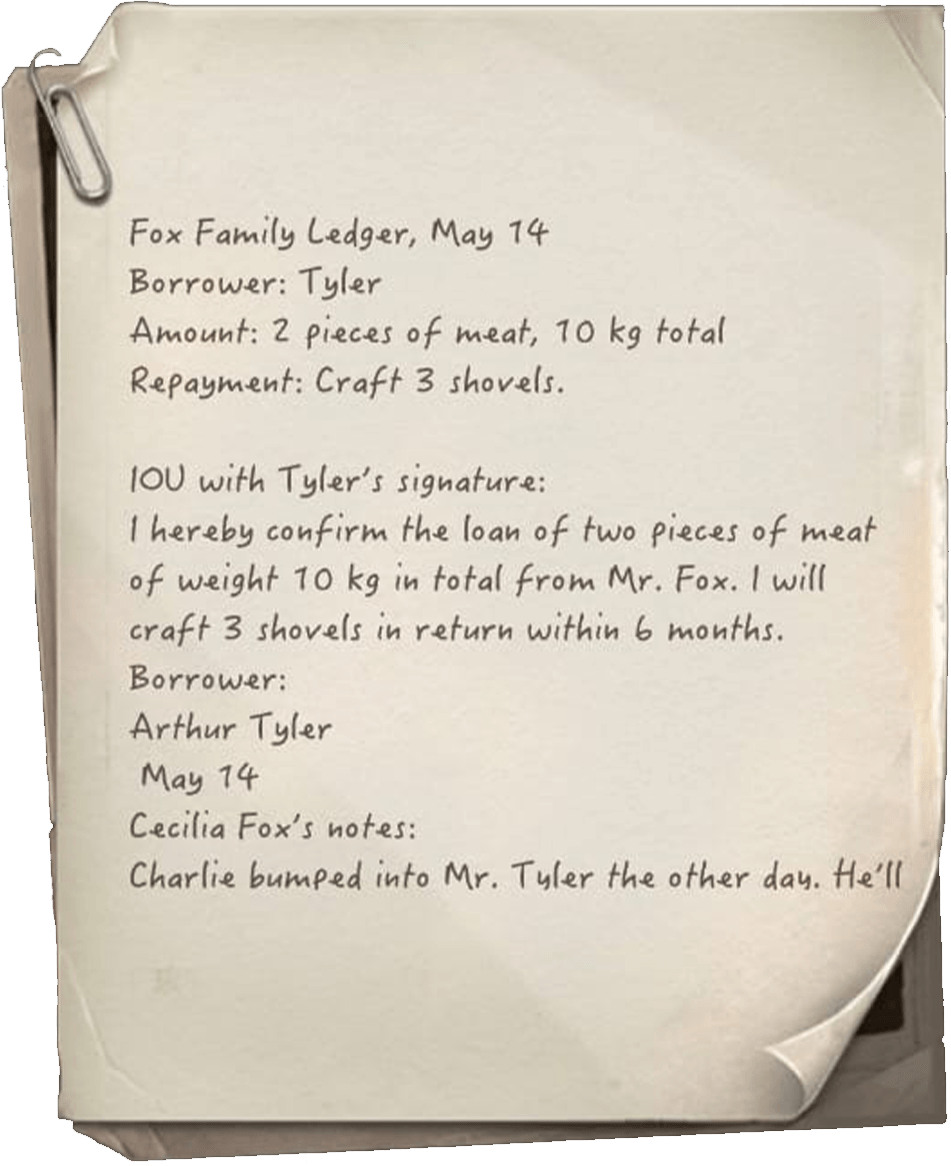 Fox Family Ledger, May 14
Borrower: Tyler
Amount: 2 pieces of meat, 10 kg total
Repayment: Craft 3 shovels.
IOU with Tyler's signature:
I hereby confirm the loan of two pieces of meat
of weight 10 kg in total from Mr. Fox. I will
craft 3 shovels in return within 6 months.
Borrower:
Arthur Tyler
May 14
Cecilia Fox's notes:
Charlie bumped into Mr. Tyler the other day. He'll